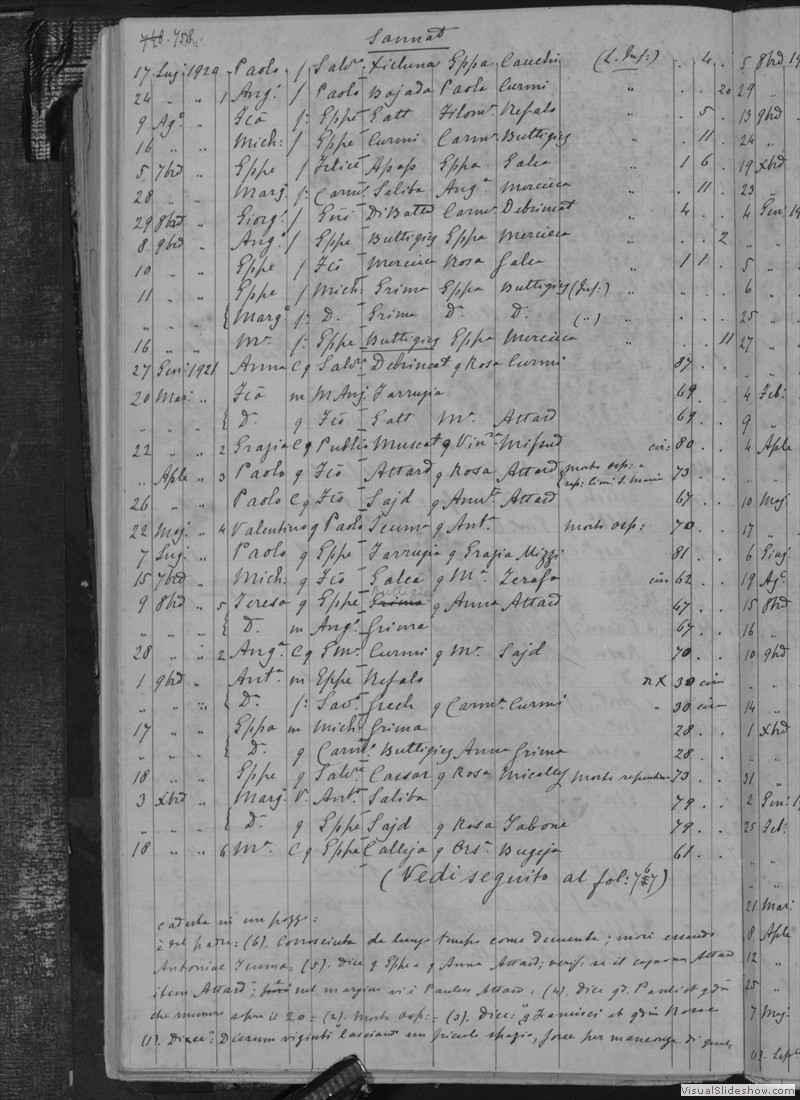 748. 758.
Sannat
17 Lug: 1920 Paolo f Salv.e Xicluna Eppa Cauchi (L. Inf:) . 4 . 5 8brd
24 „ „ 1 Ang.a f Paolo Bajada Paola Curmi „ . . 20 29 „
9 Ag.o „ Fcõ f: Eppe Gatt Filom.a Refalo „ . 5 . 13 9brd
16 „ „ Mich: f Eppe Curmi Carm.a Buttigieg „ . 11 . 24 „
5 7brd „ Eppe f Felice Apap Eppa Galea „ 1 6 . 19 Xbrd
28 „ „ Marg: f: Carm.o Saliba Ang.a Mercieca „ . 11 . 23 „
29 8brd „ Giorg.a f Gius Di Battã Carm.a Debrincat „ 4 . . 4 Gen: 19
8 9brd „ Ang.a f Eppe Buttigieg Eppa Mercieca „ . . 2 „ „
10 „ „ Eppe f Fcõ Mercieca Rosa Galea „ 1 1 . 5 „
11 „ „ Eppe f Mich: Grima Eppa Buttigieg (Inf:) „ . . . 6 „
„ „ „ { Marg.a f: D. Grima D. D. („) „ . . . 25 „
16 „ „ M.a f: Eppe Buttigieg Eppa Mercieca „ . . 11 27 „
27 Gen: 1921 Anna C q Salv.e Debrincat q Rosa Curmi 87 . . „ „
20 Mar: „ Fcã m M. Ang: Farrugia 69 . . 4 Feb:
„ „ „ { D. q Fcõ Gatt M.a Attard 69 . . 9 „
22 „ „ 2 Grazia C q Publio Muscat q Vin.a Mifsud cir: 80 . . 4 Aple
„ Aple „ 3 Paolo q Fcõ Attard q Rosa Attard { morto osp: e sep: Cimi S. Maria 73 . .
26 „ „ Paolo C q Fcõ Sajd q Ann.a Attard 67 . . 10 Maj
22 Maj: „ 4 Valentino q Paolo Scuma q Ant.a morto osp: 70 . . 17 „
7 Lug: „ Paolo q Eppe Farrugia q Grazia Mizzi 81 . . 6 Giug
15 7brd „ Mich: q Fcõ Galea q M.a Zerafa cir 62 . . 19 Ag.o
9 8brd „ 5 Teresa q Eppe Grima Buttigieg q Anna Attard 67 . . 15 8brd
„ „ „ { D. m Ang.o Grima 67 . . 16 „
28 „ „ 2 Ang.a C q Em.e Curmi q M.a Sajd 70 . . 10 9brd
1 9brd „ Ant.a m Eppe Refalo 30 cir
„ „ „ { D. f: Sav.o Grech q Carm.a Curmi „ 30 cir 14 „
17 „ „ Eppa m Mich: Grima 28 . . 1 Xbrd
„ „ „ { D. q Carm.o Buttigieg Anna Grima 28 . .
18 „ „ Eppe q Salv.e Cassar q Rosa Micallef morto repentina 73 . . 31 „
3 Xbrd „ Marg: V. Ant.o Saliba 79 . . 2 Gen: 1
„ „ „ { D. q Eppe Sajd q Rosa Tabone 79 . . 25 Feb:
18 „ „ 6 M.a C q Eppe Calleja q Ors.a Bugeja 61 . . „ „
(Vedi seguito al fol: 767)
21 Mar:
caduta in un pozzo =
è del padre = (6). Conosciuta da lungo tempo come demente; morì essendo 8 Aple
Antoniae Scuma = (5). Dice q Eppe e q Anna Attard; verif: se il cognome Attard 12 „
item Attard; nel margine vi è Paulus Attard = (4). Dice qd. Pauli et qdm 25 „
che numero sopra il 20 = (2). Morto osp: = (3). Dice: "q Francisci et qdm Rosae 7 Maj:
(1). Dice: "Dierum viginti" lasciando un piccolo spazio, forse per mancanza di
VisualSlideshow.com